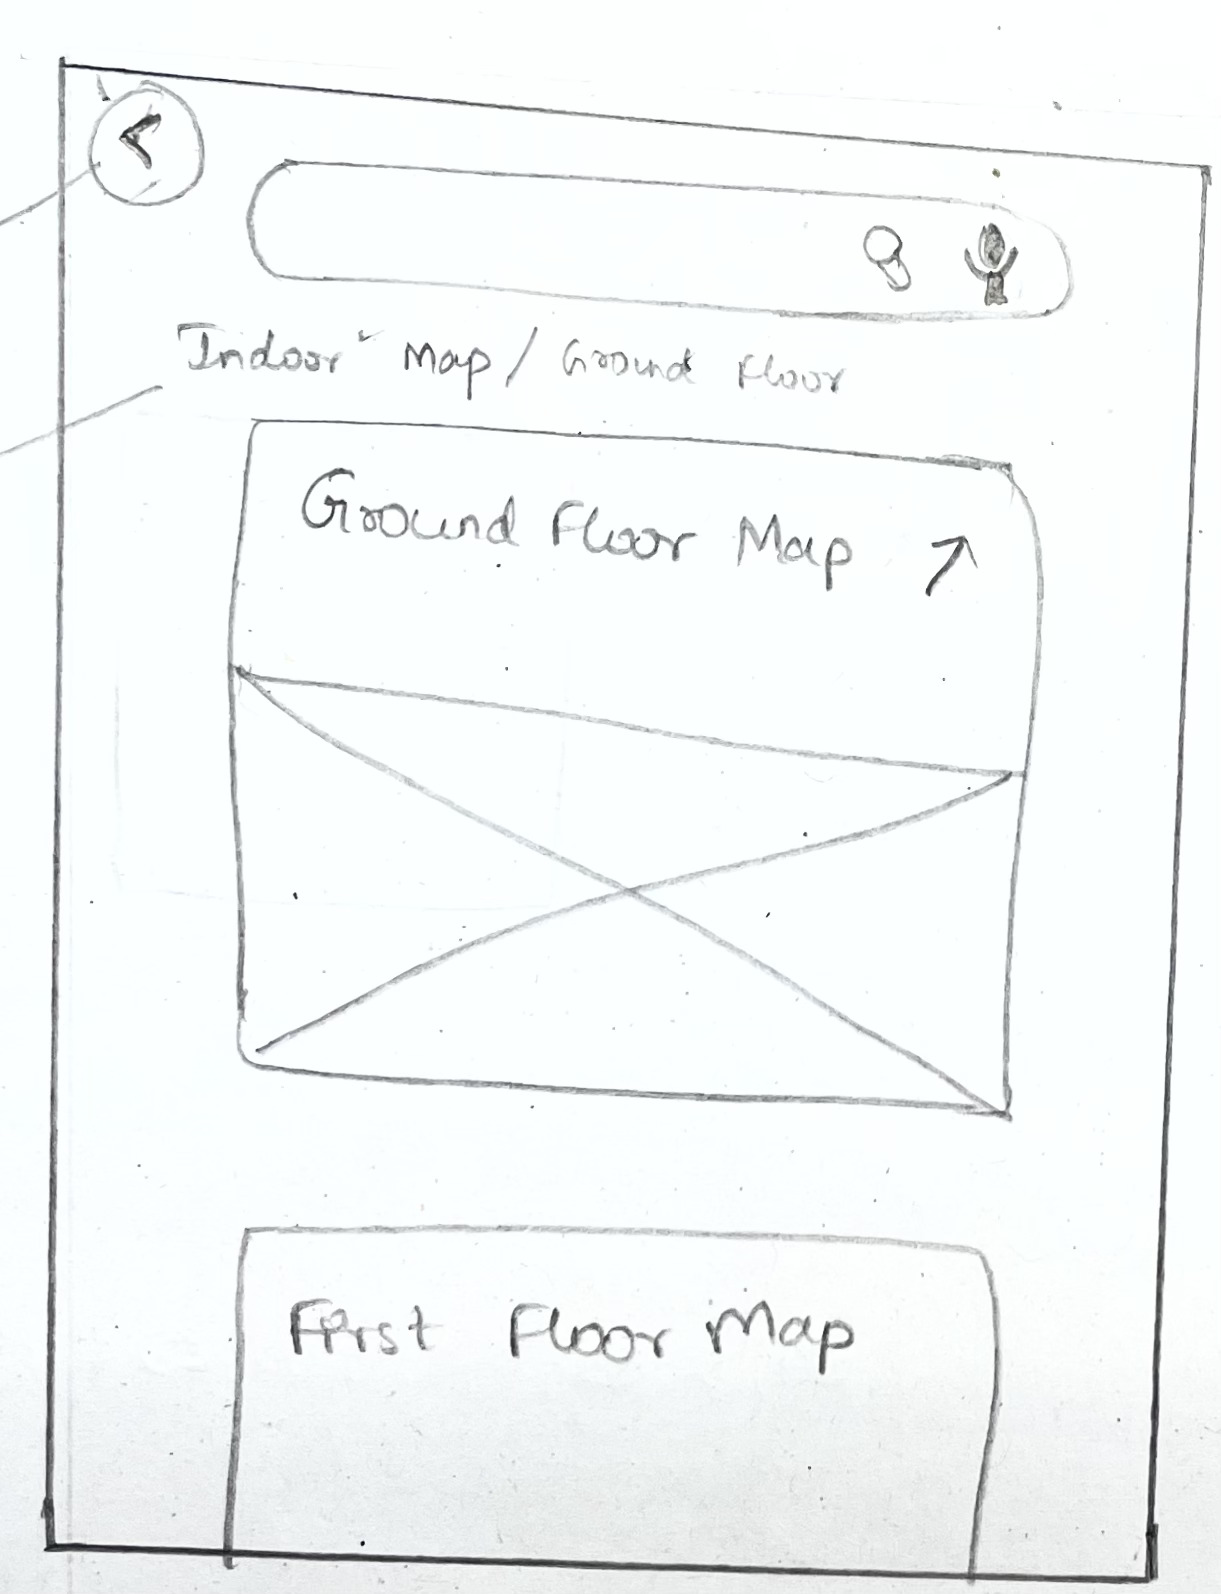 Indoor Map / Ground Floor
Ground Floor Map
First Floor Map